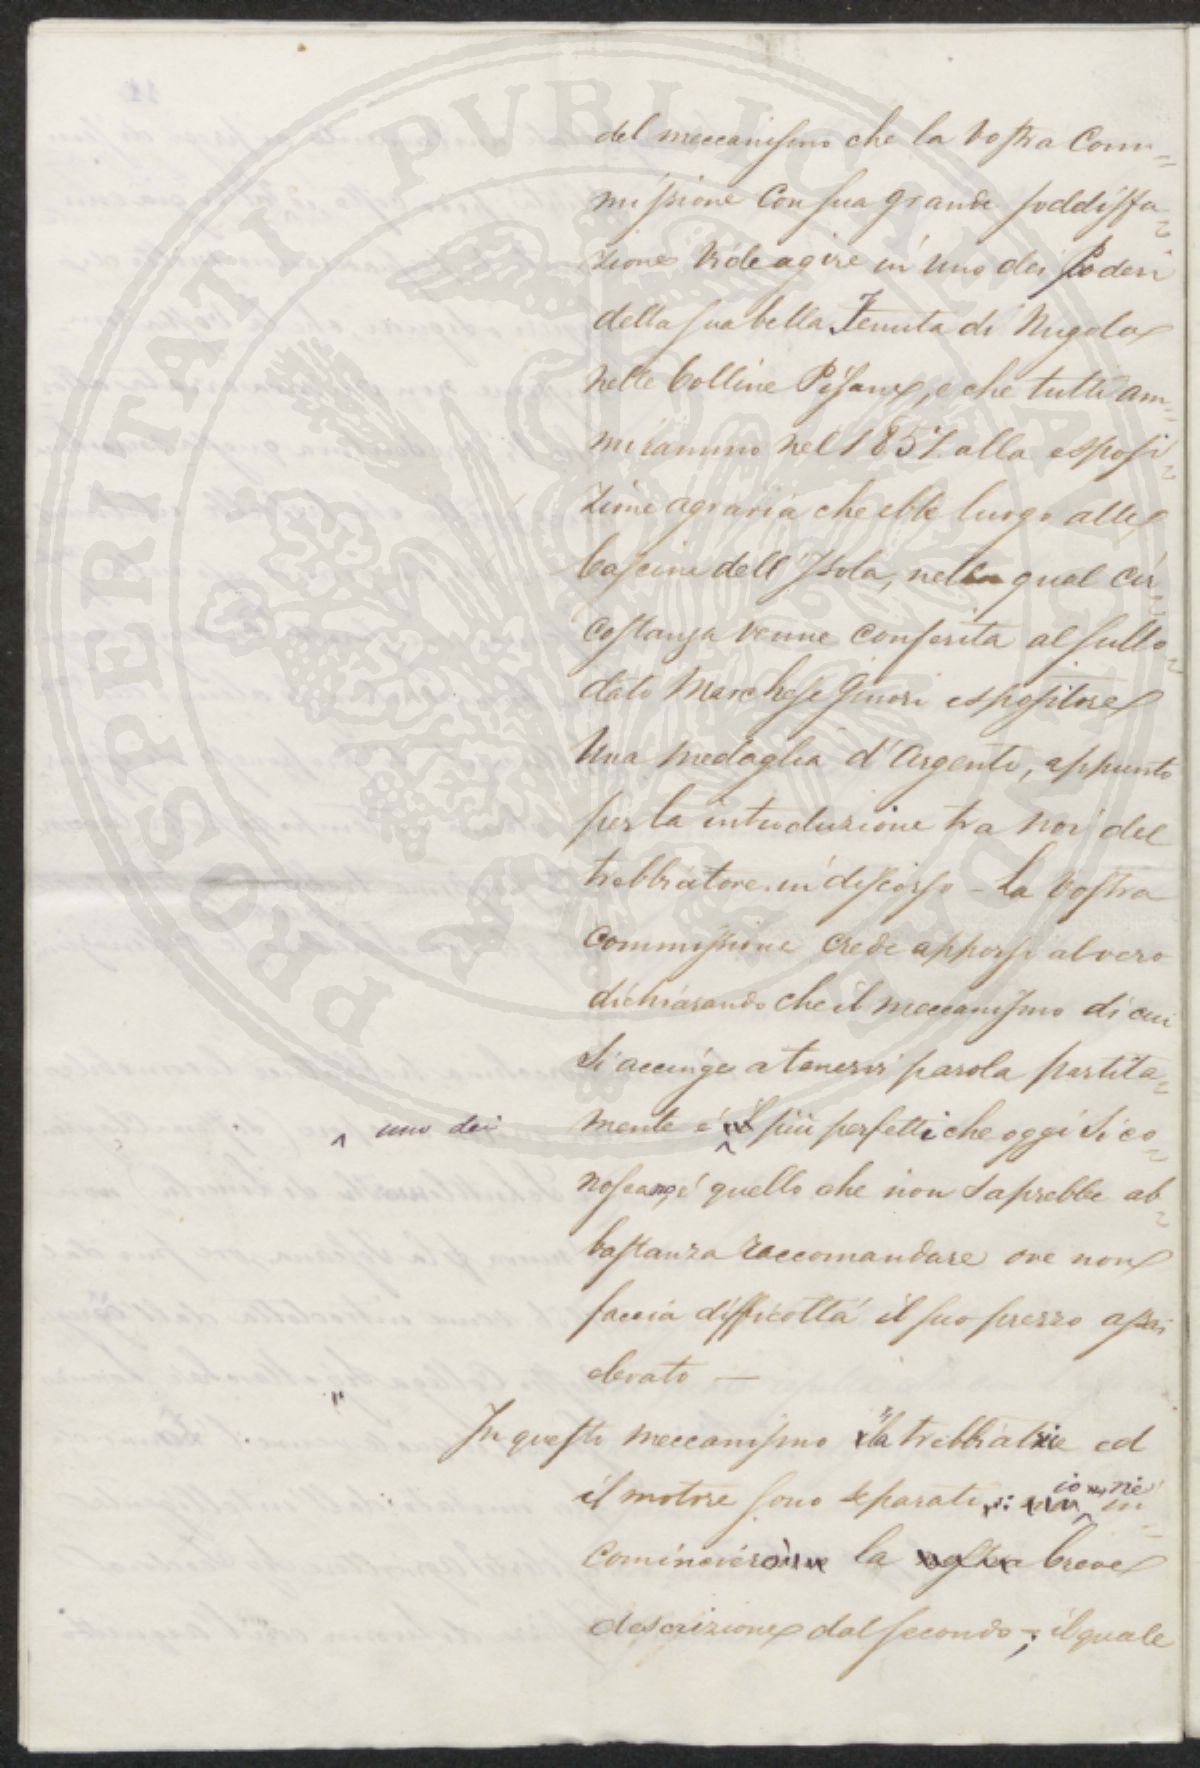 del meccanismo che la Vostra Com=
missione con sua grande soddisfa=
zione vide agire in uno dei Poderi
della sua bella Tenuta di Nugola
nelle Colline Pisane, e che tutti am=
mirammo nel 1857 alla esposi=
zione agraria che ebbe luogo alle
Cascine dell'Isola, nella qual cir=
costanza venne conferita al sullo=
dato Marchese Ginori espositore
una medaglia d'Argento, appunto
per la introduzione tra noi del
trebbiatore in discorso - La Vostra
Commissione crede apporsi al vero
dichiarando che il meccanismo di cui
si accinge a tenervi parola partita=
mente è il più perfetti che oggi si co=
^ uno dei
noscano, è quello che non saprebbe ab=
bastanza raccomandare ove non
faccia difficoltà il suo prezzo assai
elevato —
In questo meccanismo la trebbiatrice ed
il motore sono separati: io ne in=
comincierò la breve
descrizione dal secondo; il quale
PROSPERITATI PUBLICAE AUGENDAE